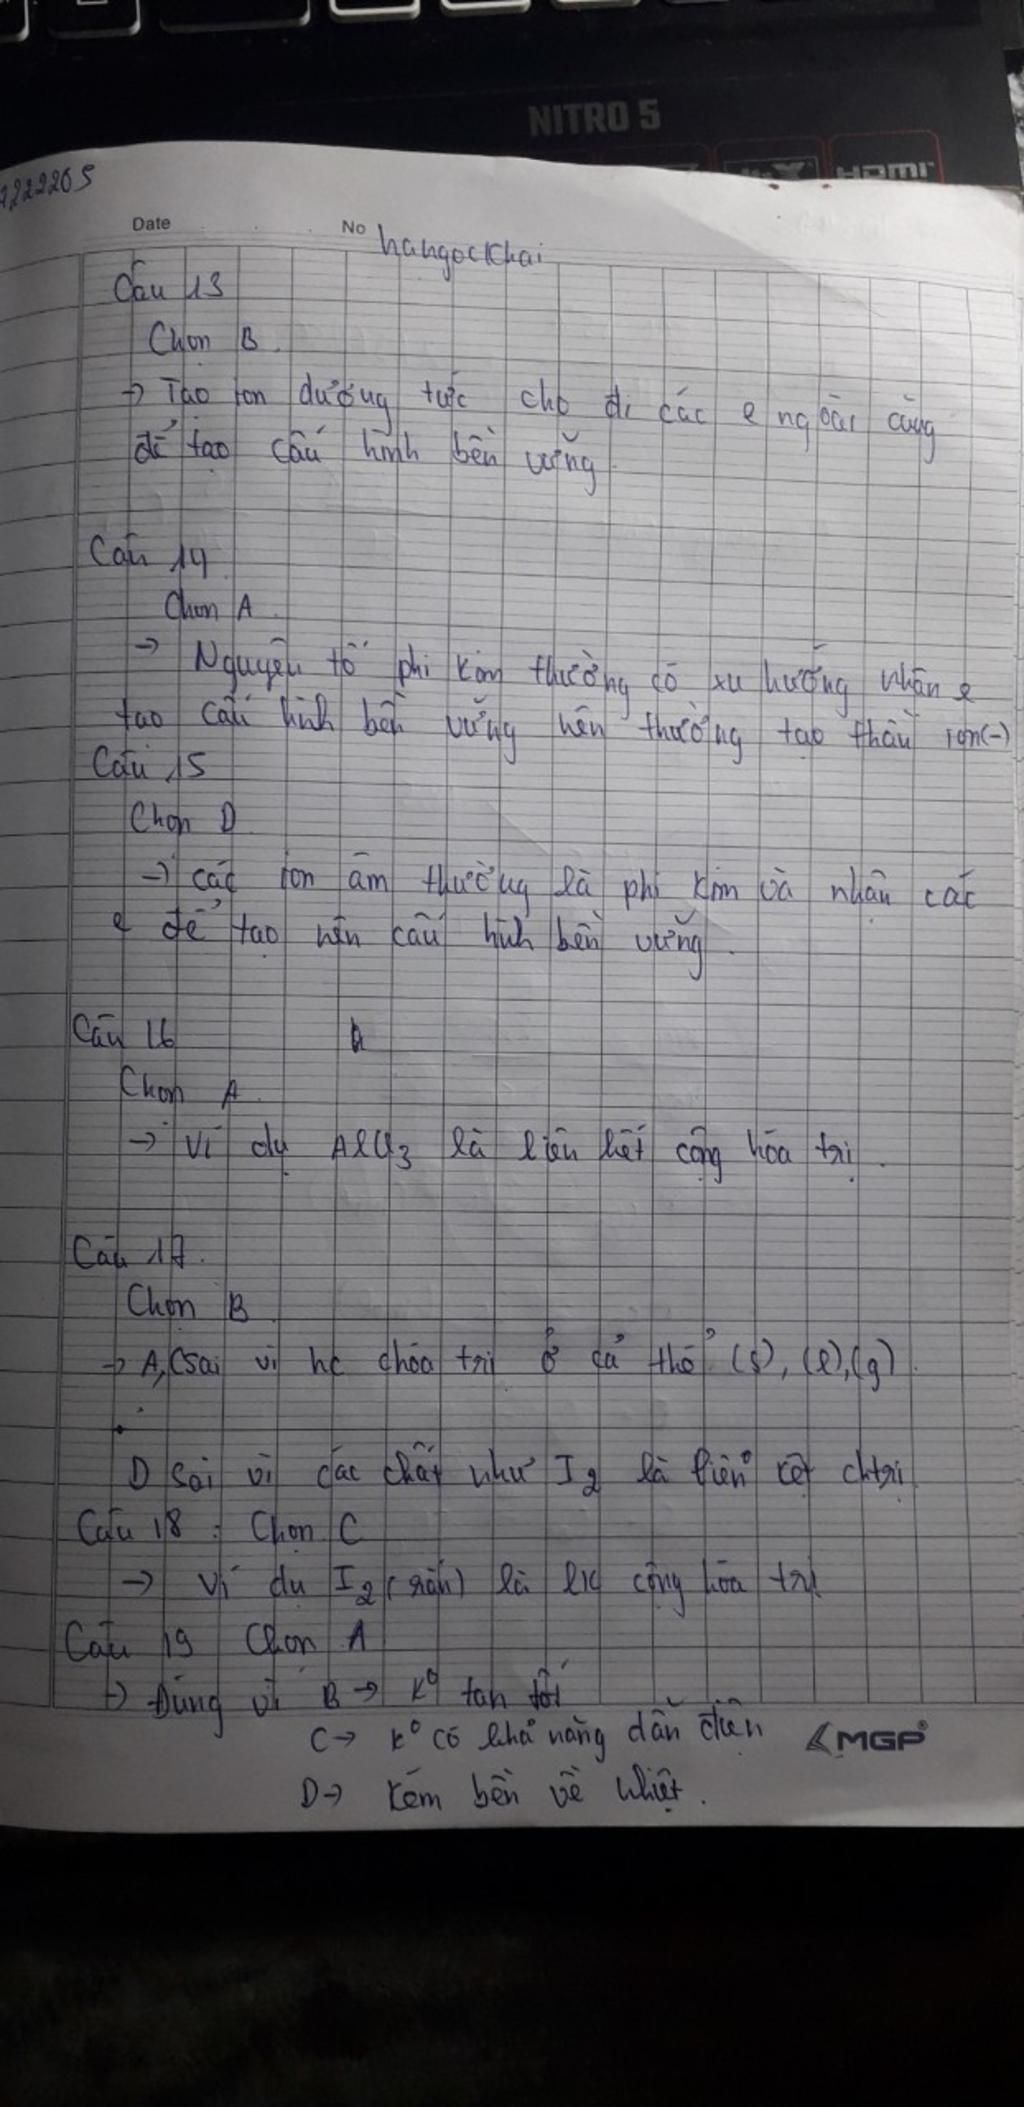 NITRO 5
HDMI
Date No hangockhai
Câu 13
Chọn B.
→ Tạo ion dương tức cho đi các e ngoài cùng
để tạo cấu hình bền vững.
Câu 14
Chọn A.
→ Nguyên tố phi kim thường có xu hướng nhận e
tạo cấu hình bền vững nên thường tạo thành ion(-)
Câu 15
Chọn D
→ các ion âm thường là phi kim và nhận các
e để tạo nên cấu hình bền vững.
Câu 16
Chọn A.
→ Ví dụ AlCl3 là liên kết cộng hóa trị.
Câu 17.
Chọn B
→ A, C sai vì hc chóa trị ở cả thể (s), (l), (g).
D sai vì các chất như I2 là liên kết chtrị
Câu 18 : Chọn C
→ Ví dụ I2 (rắn) là lk cộng hóa trị
Câu 19 Chọn A
→ Đúng vì B → k° tan tốt
C → k° có khả năng dẫn điện
MGP
D → kém bền về nhiệt.